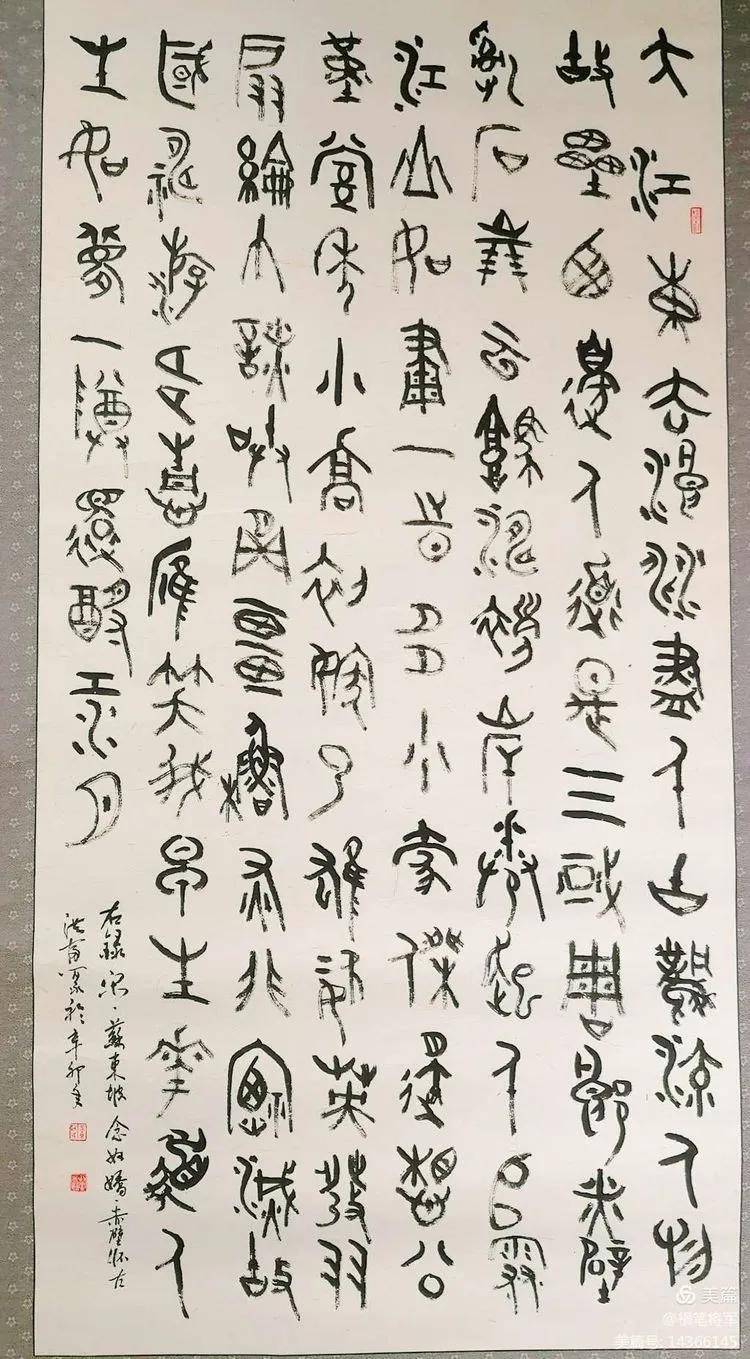 大江東去浪淘盡千古風流人物
故壘西邊人道是三國周郎赤壁
亂石云驚濤岸捲起千堆雪
江山如畫一時多少豪傑遙想公
瑾當年小喬初嫁了雄姿英發羽
扇綸巾談笑間檣櫓灰飛煙滅故
國神游多情應笑我早生華髮人
生如夢一尊還酹江月
右錄宋·蘇東坡念奴嬌·赤壁怀古
於辛卯冬
美篇
美篇号: 14366145